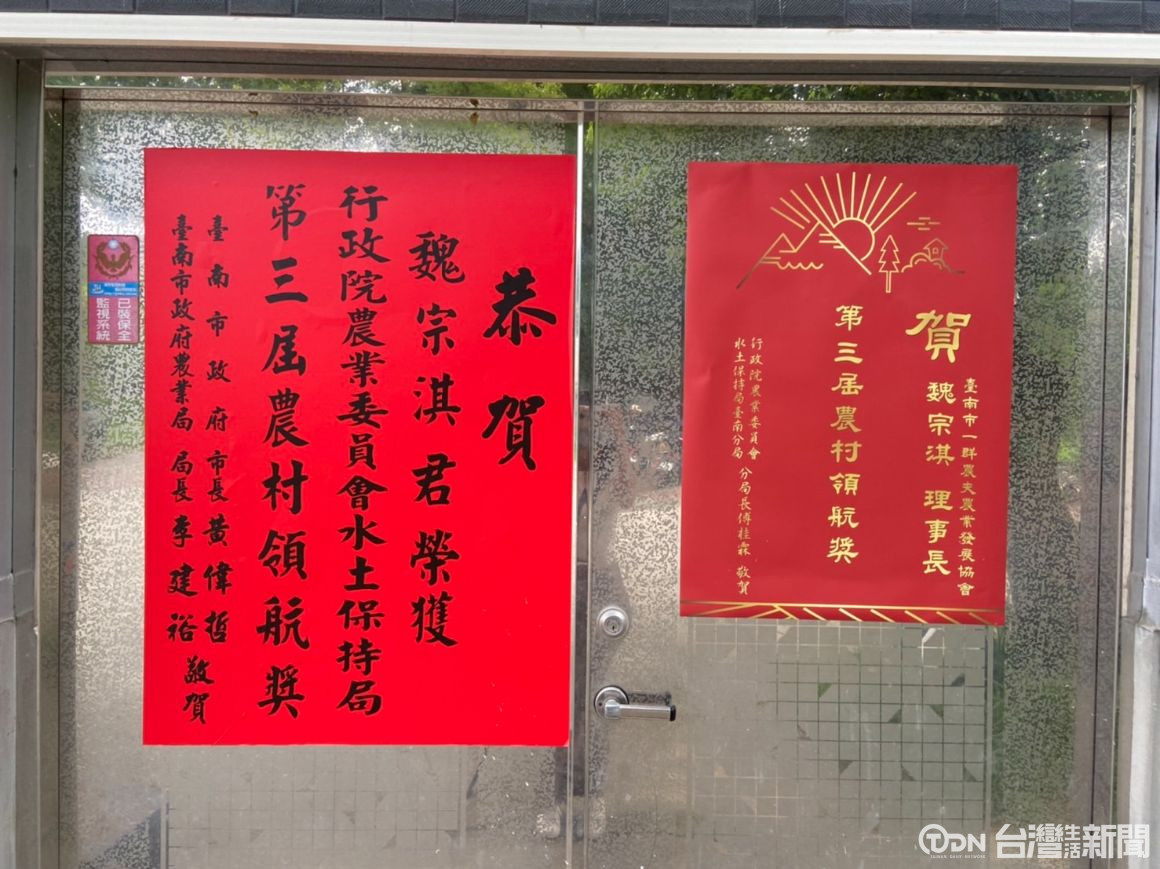 恭賀
魏宗淇君榮獲
行政院農業委員會水土保持局
第三屆農村領航獎
臺南市政府市長黃偉哲
臺南市政府農業局局長李建裕
敬賀
已裝保全
監視系統
臺南市一群農夫農業發展協會
賀 魏宗淇 理事長
第三屆農村領航獎
行政院農業委員會
水土保持局臺南分局 分局長傅桂霖 敬賀
TDN 台灣生活新聞
TAIWAN DAILY NETWORK